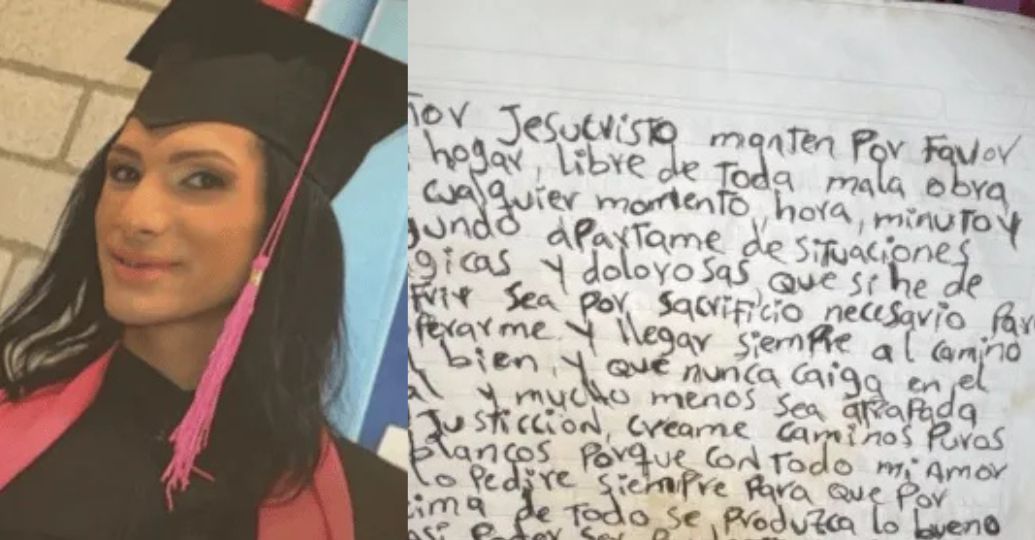 Jesucristo manten Por Favor
hogar, libre de Toda mala obra
cualquier momento, hora, minuto y
gundo apartame de situaciones
gicas y dolorosas, que si he de
frir sea por sacrificio necesario Par
perarme y llegar siempre al camino
l bien, y que nunca caiga en el
al y mucho menos sea atrapada
Justiccion, creame caminos Puros
blancos Porque con Todo mi Amor
lo Pedire siempre Para que Por
ima de Todo se Produzca lo bueno